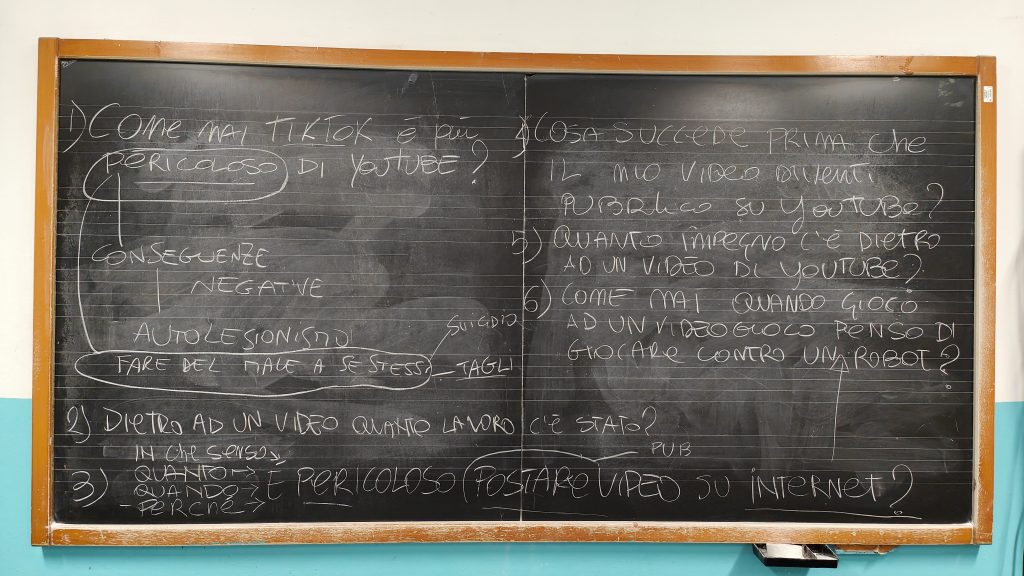 1) COME MAI TIKTOK È PIÙ
PERICOLOSO DI YOUTUBE?
CONSEGUENZE
NEGATIVE
AUTOLESIONISTO
FARE DEL MALE A SE STESSI
SUICIDIO
TAGLI
2) DIETRO AD UN VIDEO QUANTO LAVORO C'È STATO?
IN CHE SENSO
QUANTO →
QUANDO →
- PERCHÉ →
3) È PERICOLOSO POSTARE VIDEO SU INTERNET?
PUB
4) COSA SUCCEDE PRIMA CHE
IL MIO VIDEO DIVENTI
PUBBLICO SU YOUTUBE?
5) QUANTO IMPEGNO C'È DIETRO
AD UN VIDEO DI YOUTUBE?
6) COME MAI QUANDO GIOCO
AD UN VIDEOGIOCO PENSO DI
GIOCARE CONTRO UN ROBOT?